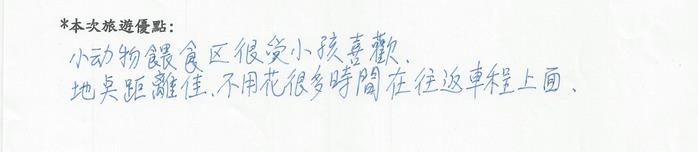 *本次旅遊優點:
小动物餵食区很受小孩喜歡.
地点距離佳.不用花很多時間在往返車程上面.